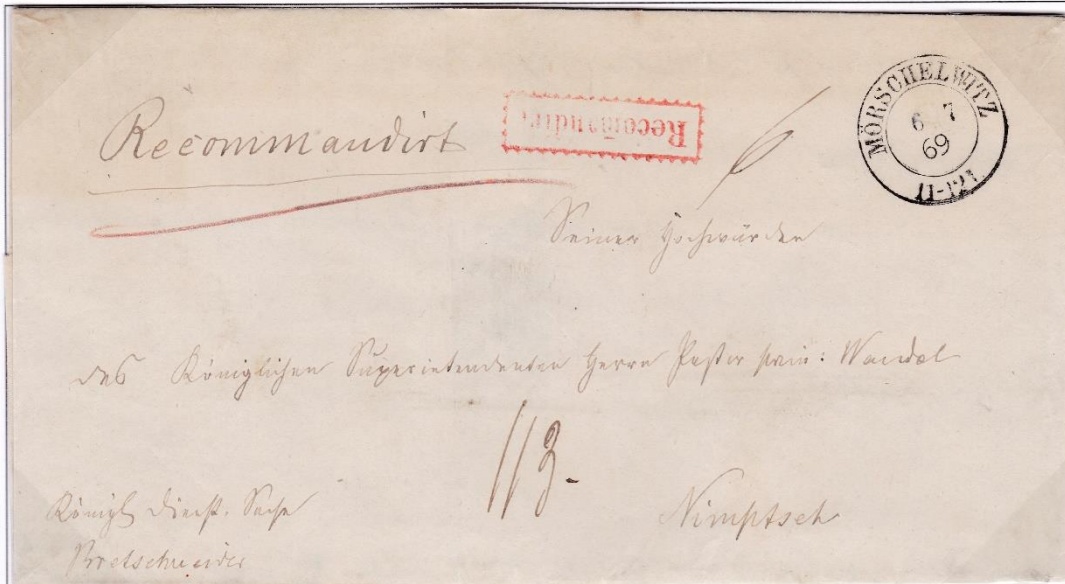 Recommandirt
Recomandirt
MÖRSCHELWITZ
6 7
69
11-12V.
Seiner Hochwürden
des Königlichen Superintendenten Herrn Pastor prim: Wandel
113.
Nimptsch
Königl Dienst. Sache
Bretschneider